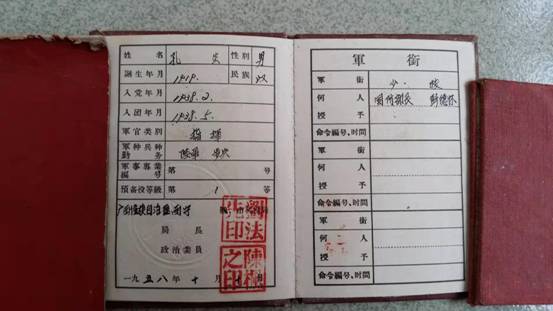 姓名 孔 性别 男
誕生年月 1919. 民族 汉
入党年月 1938.2.
入团年月 1938.5.
軍官类别 指揮
軍种兵种勤务 陆軍
軍事專業編号 第 号
預备役等級 第 1 等
广
局長
政治委員
一九五八年十月
軍銜
軍銜 少校
何人授予 国防部長 彭德怀
命令編号、时間
軍銜
何人授予
命令編号、时間
軍銜
何人授予
命令編号、时間